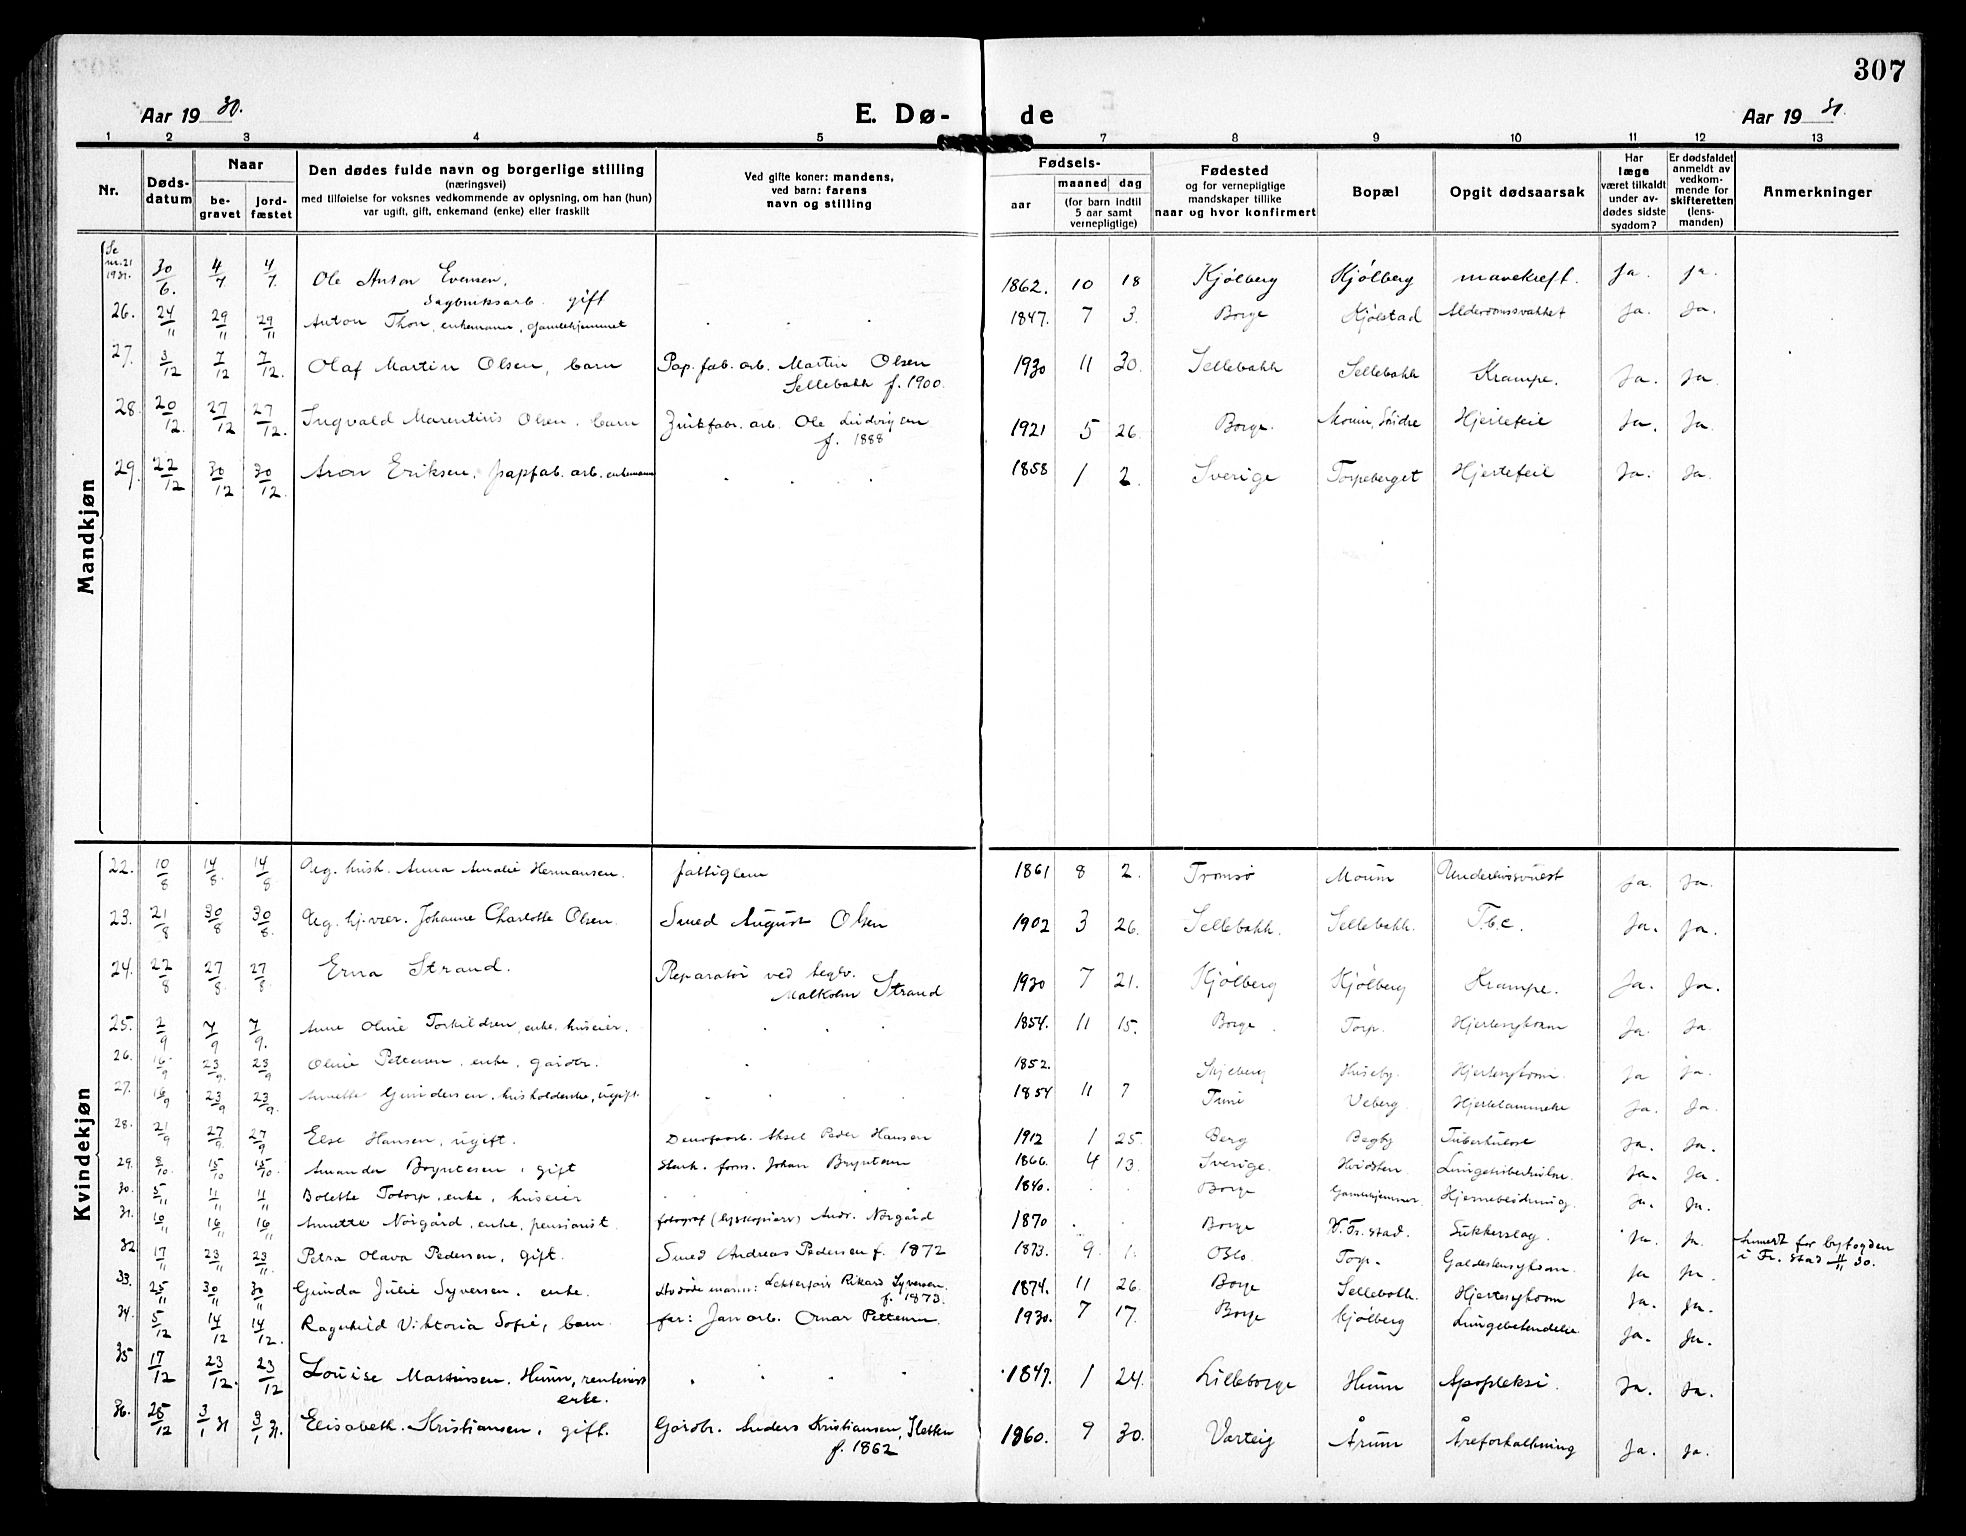 307
Aar 19 30. E. Dø- de Aar 19 30.
1 2 3 4 5 7 8 9 10 11 12 13
Nr. Døds-datum Naar be-gravet jord-fæstet Den dødes fulde navn og borgerlige stilling (næringsvei) med tilføielse for voksnes vedkommende av oplysning, om han (hun) var ugift, gift, enkemand (enke) eller fraskilt Ved gifte koner: mandens, ved barn: farens navn og stilling Fødsels- aar maaned dag (for barn indtil 5 aar samt vernepligtige) Fødested og for vernepligtige mandskaper tillike naar og hvor konfirmert Bopæl Opgit dødsaarsak Har læge været tilkaldt under av-dødes sidste sygdom? Er dødsfaldet anmeldt av vedkom-mende for skifteretten (lens-manden) Anmerkninger
Mandkjøn
Se nr. 21 1931. 30/6. 4/7 4/7. Ole Anton Evensen, Sagbruksarb. gift 1862. 10 18 Kjølberg Kjølberg mavekreft. Ja. Ja.
26. 24/11 29/11 29/11 Anton Thon, enkemann, Gamlehjemmet . . . 1847. 7 3. Borge Kjølstad Alderdomssvakhet Ja. Ja.
27. 3/12 7/12 7/12. Olaf Martin Olsen, barn Pap.fab.arb. Martin Olsen Sellebakk f. 1900. 1930 11 30. Sellebakk Sellebakk Krampe. Ja. Ja.
28. 20/12. 27/12 27/12. Ingvald Marentius Olsen, barn Zinkfabr. arb. Ole Ludvigsen f. 1888 1921 5 26. Borge. Moum, Søndre Hjertefeil Ja. Ja.
29. 22/12 30/12 30/12. Aron Eriksen, papfab. arb. enkemann . . . 1858 1 2. Sverige Torpeberget Hjertefeil Ja. Ja.
Kvindekjøn
22. 10/8 14/8. 14/8 Pleg. husk. Anna Amalie Hermansen. fattiglem 1861 8 2. Tromsø Moum Underlivssvulst Ja. Ja.
23. 21/8 30/8 30/8. Ug. hj.vær. Johanne Charlotte Olsen. Smed August Olsen 1902 3 26. Sellebakk. Sellebakk. T.b.c. Ja. Ja.
24. 22/8 27/8. 27/8 Erna Strand. Reparatør ved teglv. Malkolm Strand 1930 7 21. Kjølberg Kjølberg Krampe. Ja. Ja.
25. 2/9 7/9 7/9. Anne Oline Torkildsen, enke, huseier. . . . 1854. 11 15. Borge. Torp. Hjertesykdom Ja. Ja.
26. 16/9 23/9. 23/9 Oline Pettersen, enke, gårdbr. . 1852. Skjeberg Huseby. Hjertesykdom. Ja Ja.
27. 16/9 23/9 23/9. Annette Gundersen, husholderske, ugift. . . . 1854 11 7 Tune Veberg. Hjertelammelse Ja. Ja.
28. 21/9 27/9. 27/9 Else Hansen, ugift. Aksel Peder Hansen 1912 1 25. Berg Begby Tuberkulose Ja. Ja.
29. 8/10. 15/10 15/10. Amanda Bryntesen, gift Johan Bryntesen 1866. 4 13. Sverige. Hvidsten. Lungetuberkulose. Ja. Ja.
30. 5/11 11/11 11/11 Bolette Totorp, enke, huseier . . . 1840. . . Borge Gamlehjemmet Hjerneblødning Ja. Ja.
31. 10/11 16/11 16/11 Annette Norgård, enke, pensionist. fotograf Andr. Norgård 1870 . . Borge V. Fr.stad. Sukkersyg. Ja. Ja. Anmeldt for byfogden i Fr.stad 11/11 30.
32 17/11 23/11 23/11. Petra Olava Pedersen, gift. Smed Andreas Pedersen f. 1872 1873. 9 1. Oslo Torp. Galdestensykdom. Ja Ja.
33. 25/11 30/11 30/11 Gunda Julie Syversen, enke. Avdøde mann: Rikard Syversen. f. 1873. 1874. 11 26. Borge Sellebakk. Hjertesykdom Ja. Ja.
34. 5/12 14/12 14/12. Ragnhild Viktoria Sofie, barn. far: Jan arb. Ornar Pettersen. 1930. 7 17. Borge Kjølberg Lungebetendelse Ja. Ja.
35 17/12 23/12. 23/12 Louise Martinsen, Hunn, rentenist enke. . . . . 1847. 1 24. Lilleborge Hunn Apopleksi. Ja. Ja.
36. 25/12 3/1 31 3/1 31. Elisabeth Kristiansen, gift. Gårdbr. Anders Kristiansen, Sletten f. 1862 1860. 9 30. Varteig Årum Åreforkalkning Ja. Ja.